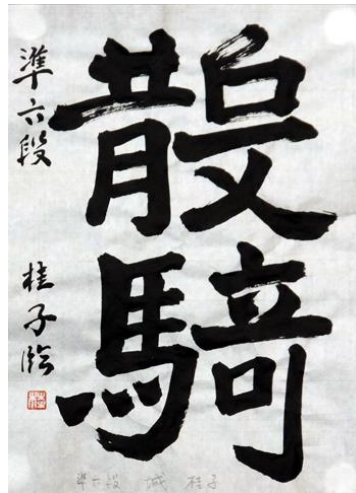 散騎
準六段 桂子臨
準六段 城 桂子